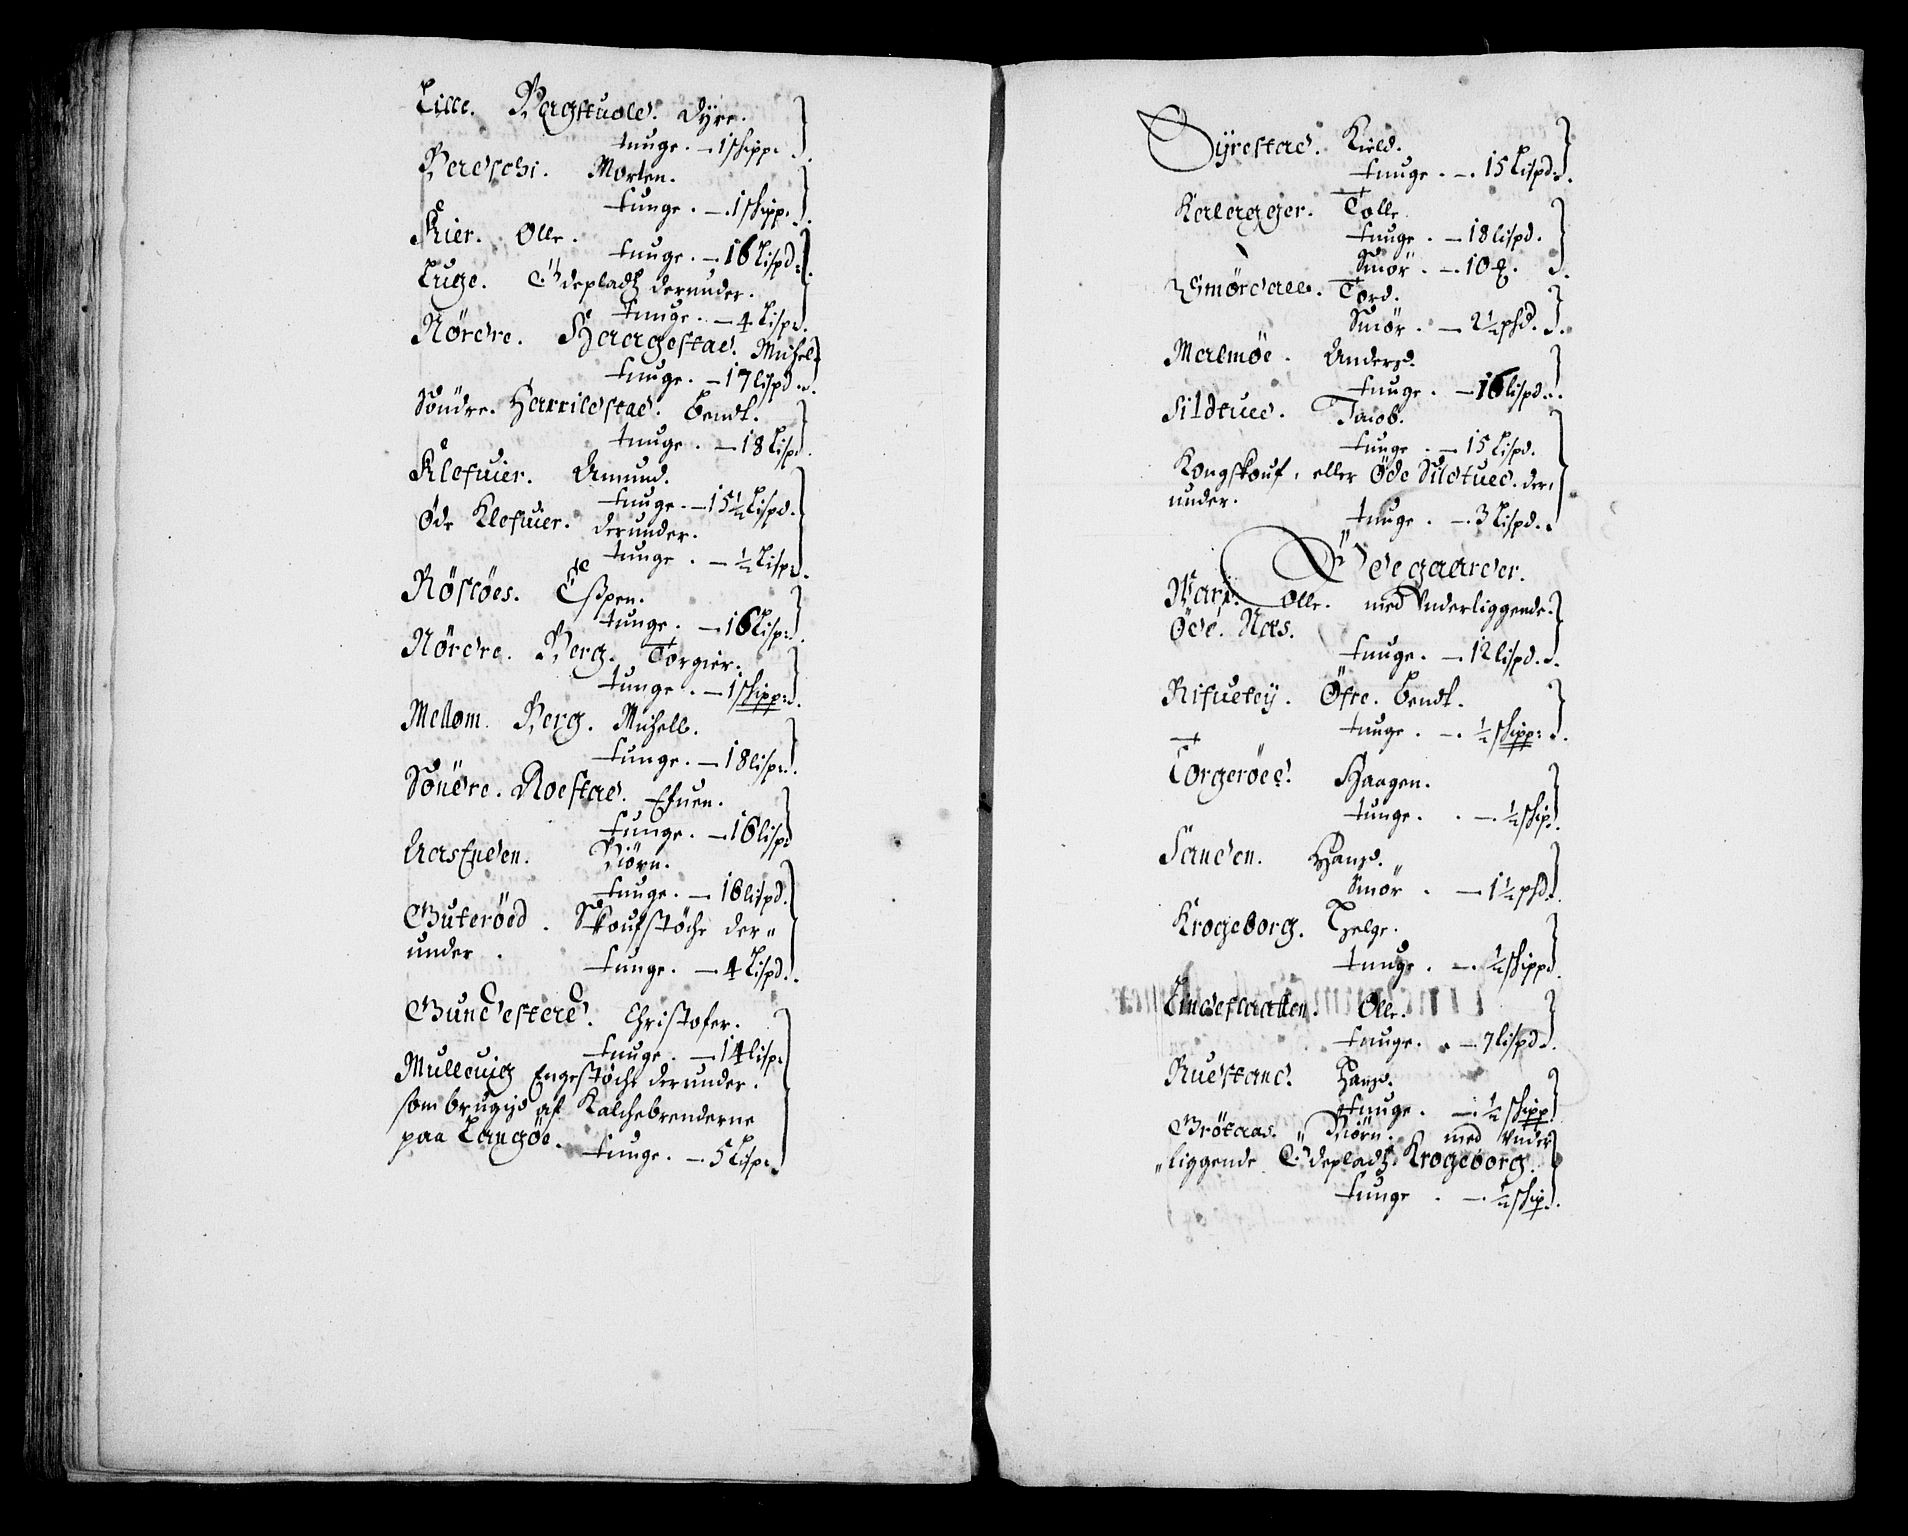 Lille. Bergstuold. Dyre.
tunge. — 1 schipp:
Morten.
tunge. — 1 schipp:
Kier. Olle.
tunge. — 16 Lispd:
Luge. Ödepladtz derunder.
tunge. — 4 Lispd.
Nördre. Haagestad. Michel
tunge. — 17 lispd.
Söndre. Harrildstad. Bendt.
tunge. — 18 Lisp.
Klefuier. Amund.
tunge. — 15½ Lispd.
Øde Klefuier. derunder.
tunge. — ½ Lisp:
Röscöes. Eßpen.
tunge. — 16 Lisp:
Nördre. Berg. Torgier.
tunge. — 1 schipp:
Mellom. Berg. Michell.
tunge. — 18 lisp:
Söndre. Roestad. Efuen.
tunge. — 16 lispd
Aasenden. Biörn.
tunge. — 16 lispd.
Guteröed. Skoufstöche der=
under.
tunge. — 4 Lispd.
Gundestad. Christofer.
tunge. — 14 lisp:
Mulleuig Engestöche derunder.
som brugis af Kalchebrenderne
paa Langöe.
tunge. — 5 Lisp:
Dyrestad. Kield.
tunge. — 15 Lispd.
Kalagger. Tolle.
tunge. — 18 lispd.
Smör. — 10
Smördall. Tord.
Smör. — 2½ phd.
Malmöe. Anders.
tunge. — 16 lispd.
Sildtued. Jacob.
tunge. — 15 Lispd.
Kongskouf, eller Öde Sildtued. der=
under.
tunge. — 3 Lispd.
Ödegaarder.
Olle. med Vnderliggende.
Öde. Nes.
tunge. — 12 lispd.
Rifuetey. Öfre. Bendt.
tunge. — ½ schipp:
Torgeröed. Haagen.
tunge. — ½ schip.
Sanden. Hans.
Smör. — 1½ phd.
Krogeborg. Helge.
tunge. — ½ schippd
Lindeflaatten. Olle.
tunge. — 7 lispd.
Rudstand. Hans.
tunge. — ½ schipp
Grötaas. Biörn. med Vnder
=liggende Ödepladtz Krogeborg.
tunge. — ½ schip.